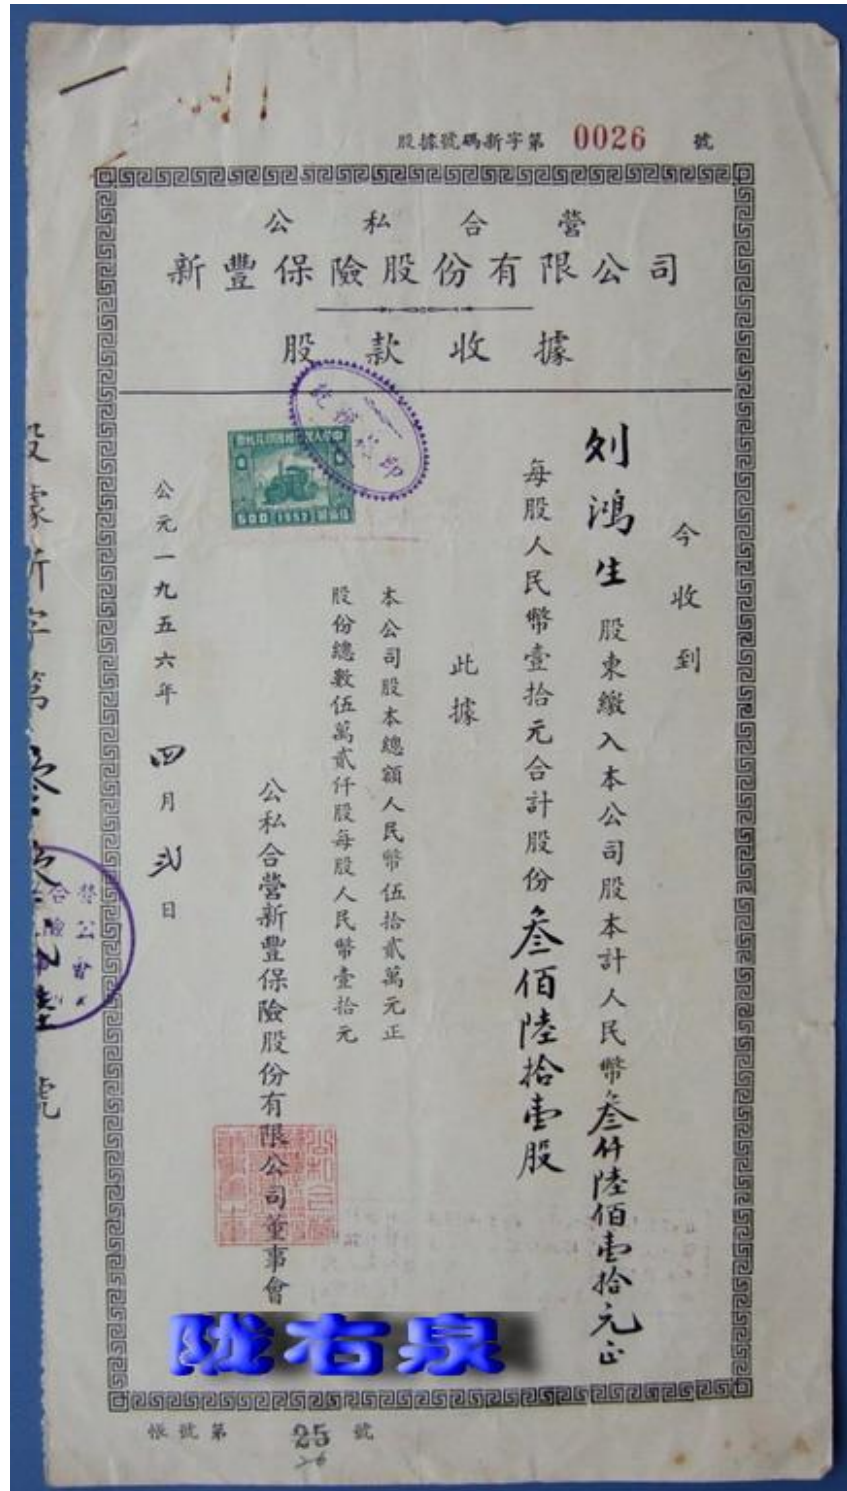 股據號碼新字第 0026 號
公私合營
新豐保險股份有限公司
股款收據
今收到
刘鴻生股東繳入本公司股本計人民幣叁仟陸佰壹拾元正
每股人民幣壹拾元合計股份叁佰陸拾壹股
此據
本公司股本總額人民幣伍拾貳萬元正
股份總數伍萬貳仟股每股人民幣壹拾元
公私合營新豐保險股份有限公司董事會
公元一九五六年四月弍日
500 (1952)
股據新字第
號
陇右泉
帳號第 25 號
26